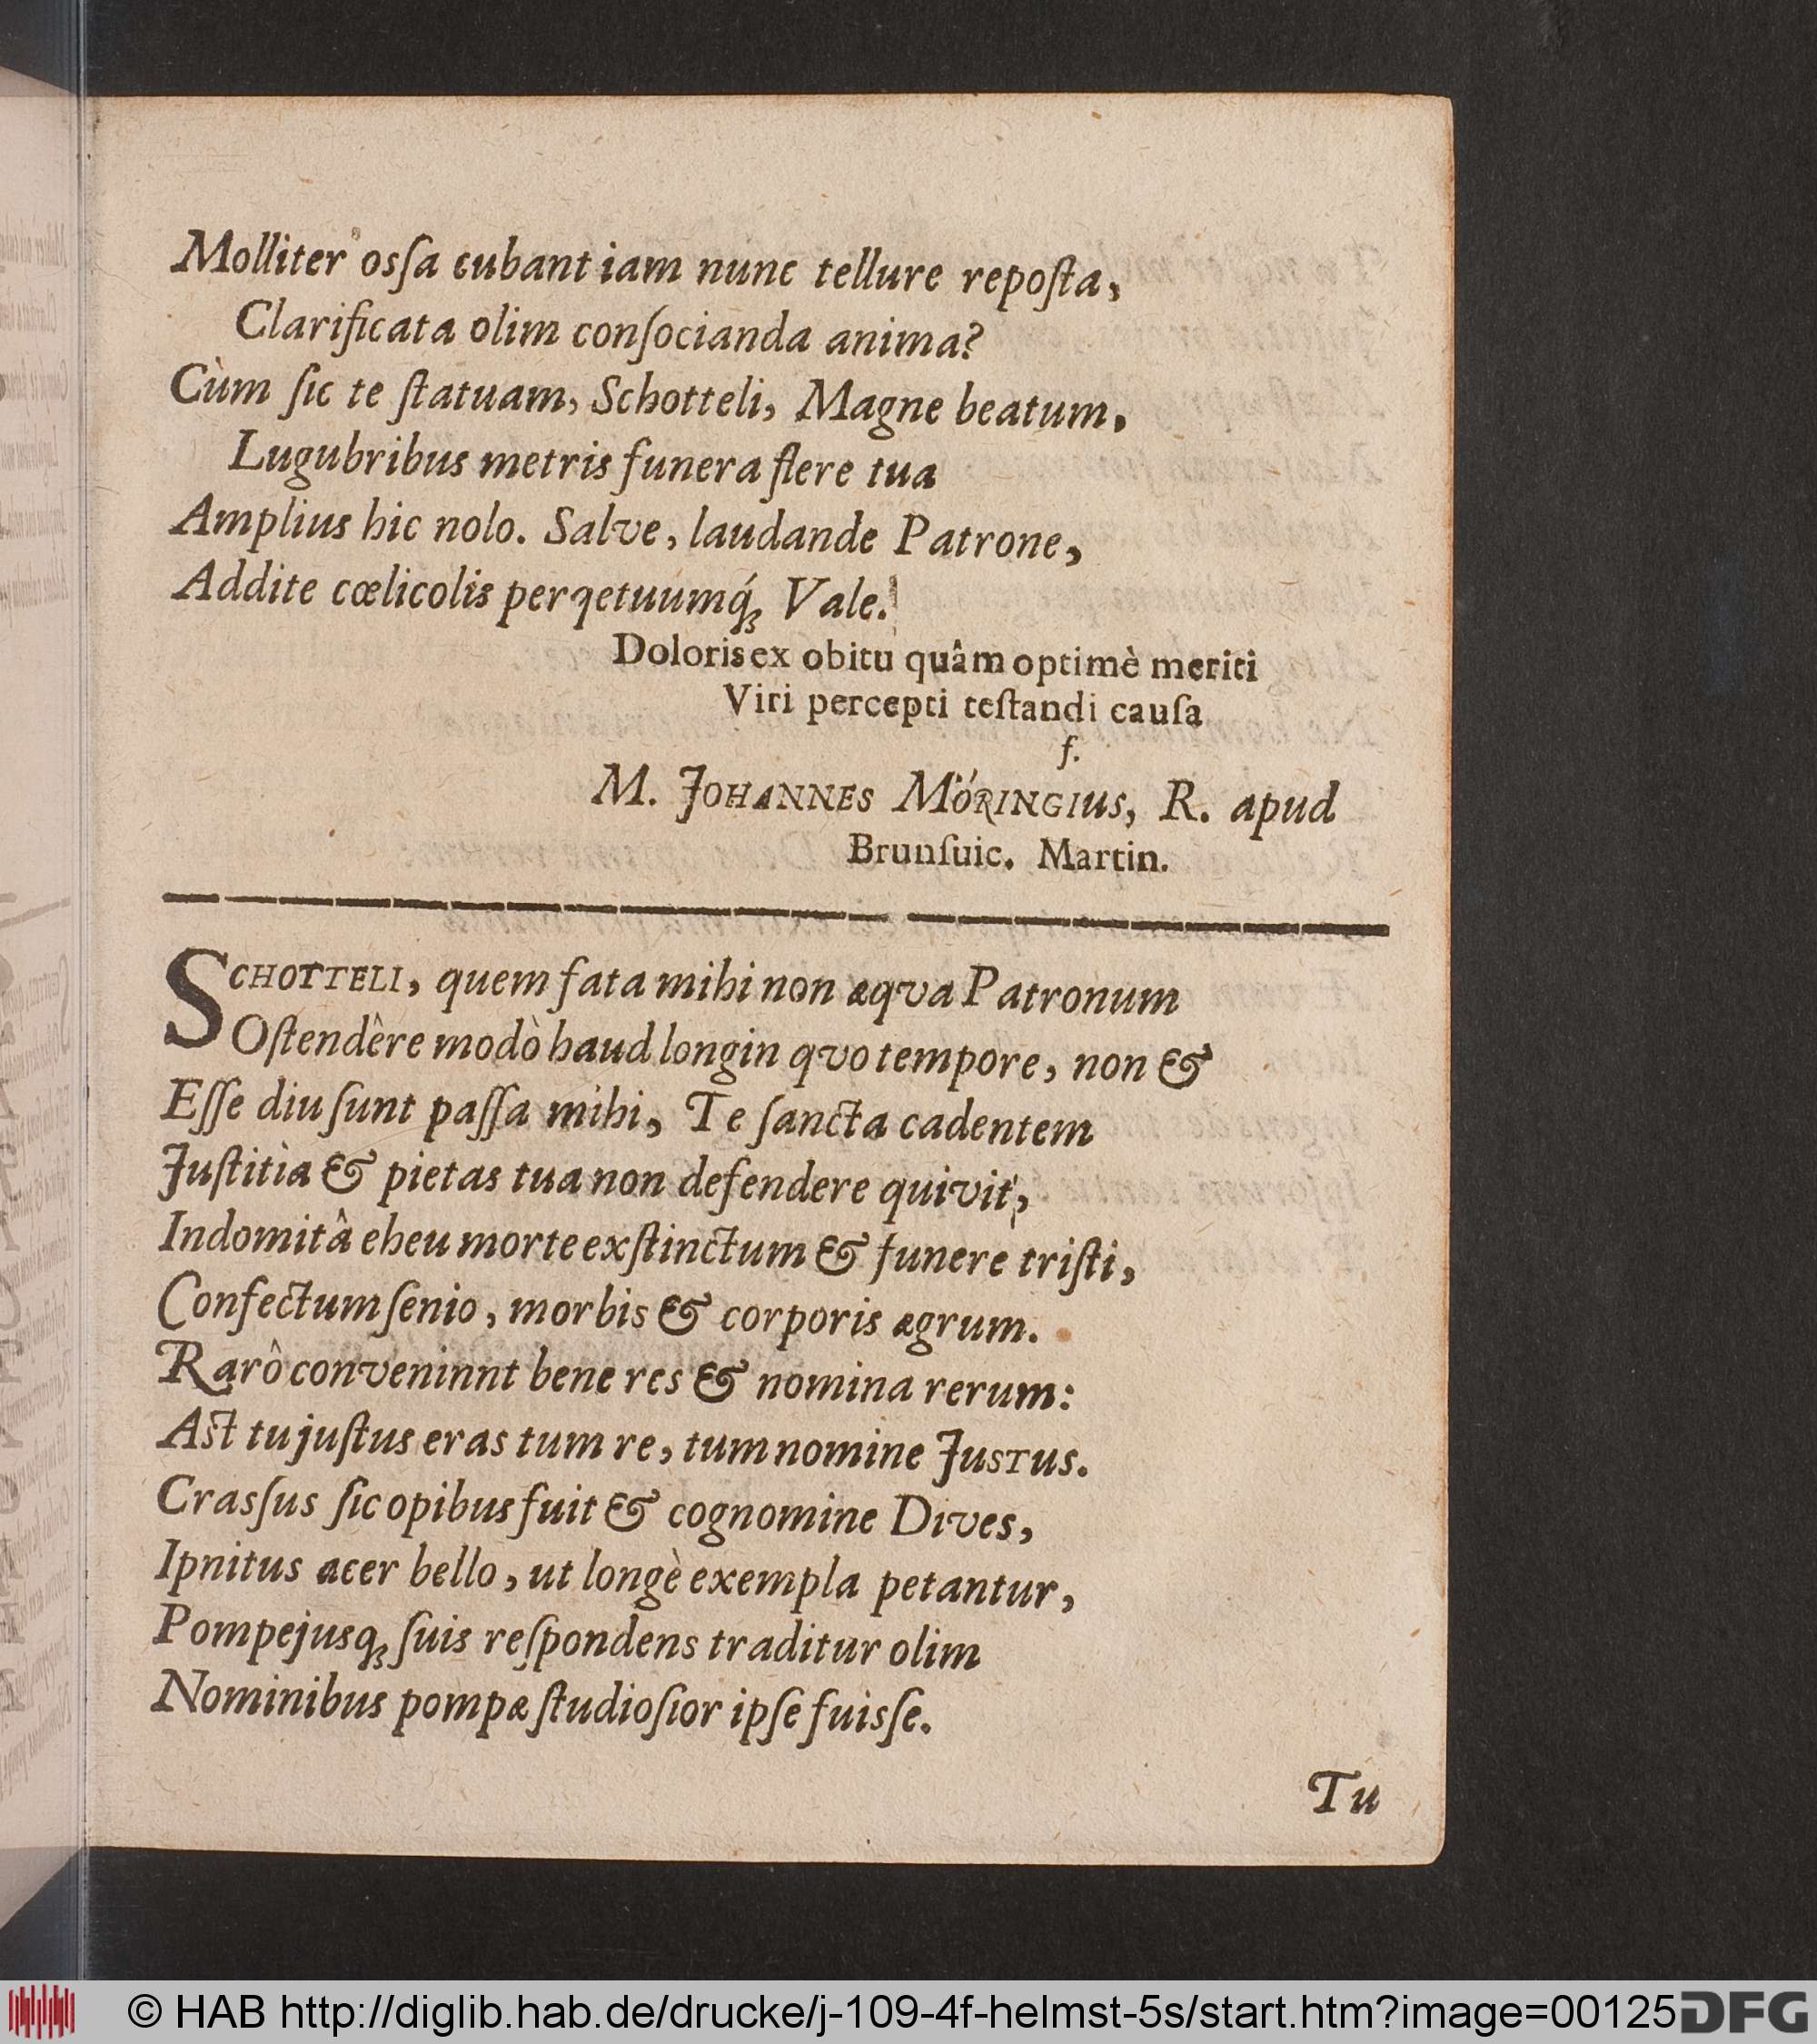 Molliter osſa cubant iam nunc tellure repoſta,
Clarificata olim conſocianda anima?
Cùm ſic te ſtatuam, Schotteli, Magne beatum,
Lugubribus metris funera flere tua
Amplius hic nolo. Salve, laudande Patrone,
Addite cœlicolis perqetuumq́ꝫ Vale.
Doloris ex obitu quâm optimè meriti
Viri percepti teſtandi cauſa
f.
M. JOHANNES MÖRINGIUS, R. apud
Brunſuic. Martin.
SCHOTTELI, quem fata mihi non æqva Patronum
Oſtendêre modò haud longin qvo tempore, non &
Eſſe diu ſunt paſſa mihi, Te ſancta cadentem
Juſtitia & pietas tua non defendere quivit,
Indomitâ eheu morte exſtinctum & funere triſti,
Confectum ſenio, morbis & corporis ægrum.
Rarô conveninnt bene res & nomina rerum:
Aſt tu juſtus eras tum re, tum nomine JUSTUS.
Crasſus ſic opibus fuit & cognomine Dives,
Ipnitus acer bello, ut longè exempla petantur,
Pompejusqꝫ ſuis reſpondens traditur olim
Nominibus pompæ ſtudioſior ipſe fuisſe.
Tu
© HAB http://diglib.hab.de/drucke/j-109-4f-helmst-5s/start.htm?image=00125
DFG